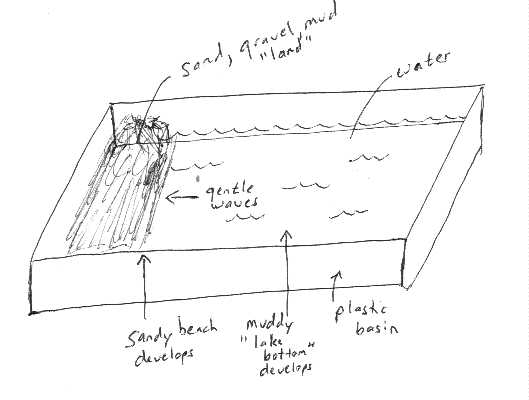 sand, gravel, mud
"land"
water
gentle
waves
sandy beach
develops
muddy
"lake
bottom"
develops
plastic
basin